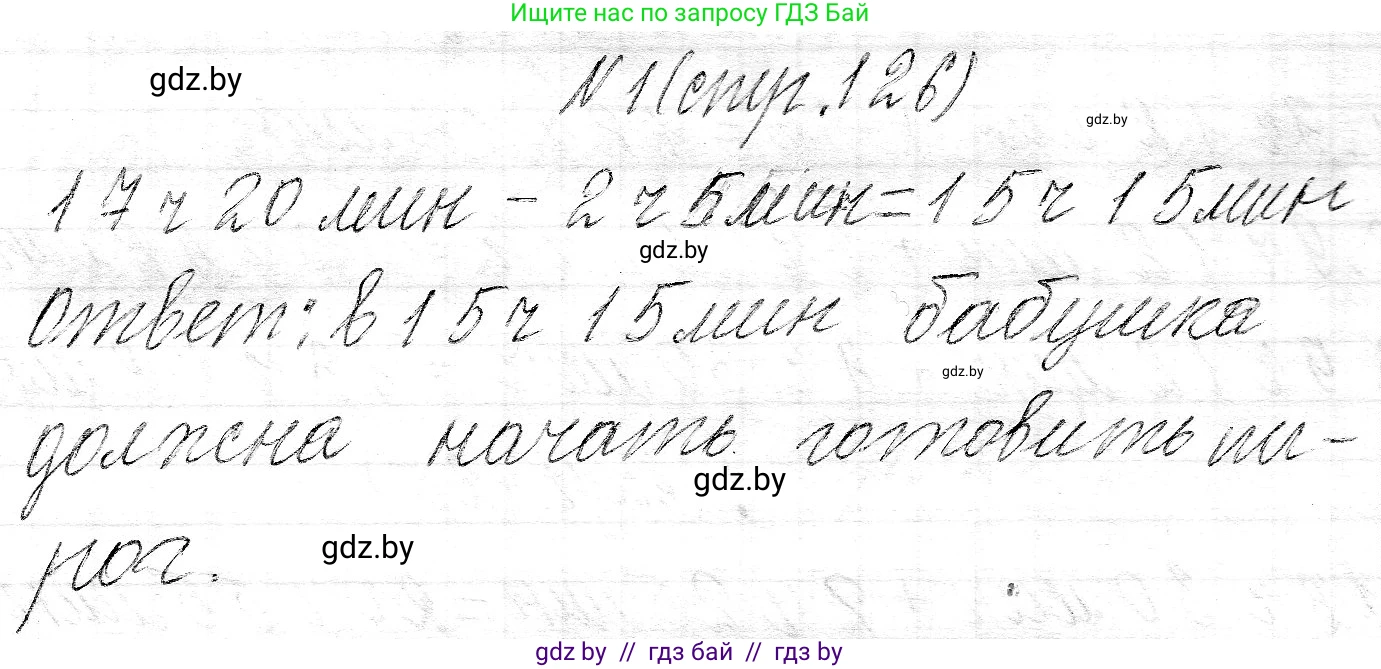 Ищите нас по запросу ГДЗ Бай
gdz.by
N 1(стр.126)
gdz.by
17 ч 20 мин - 2 ч 5 мин = 15 ч 15 мин
gdz.by
Ответ: в 15 ч 15 мин бабушка
gdz.by
должна начать готовить пи-
gdz.by
рог.
gdz.by
gdz by // гдз бай // гдз by